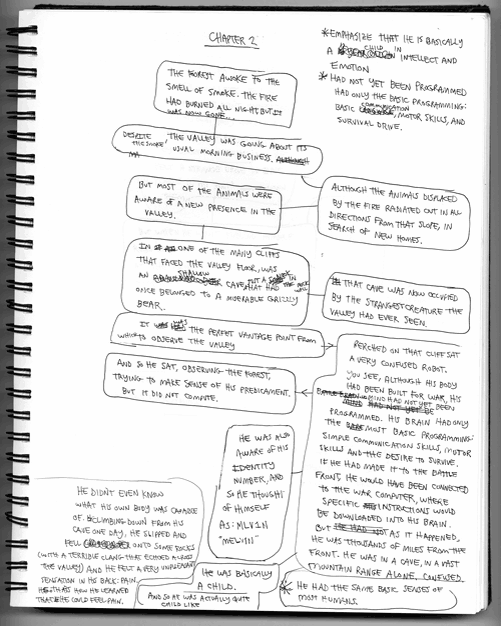 CHAPTER 2
*EMPHASIZE THAT HE IS BASICALLY
A CHILD IN INTELLECT AND
EMOTION
* HAD NOT YET BEEN PROGRAMMED
HAD ONLY THE BASIC PROGRAMMING:
BASIC COMMUNICATION, MOTOR SKILLS, AND
SURVIVAL DRIVE.
THE FOREST AWOKE TO THE
SMELL OF SMOKE. THE FIRE
HAD BURNED ALL NIGHT BUT IT
WAS NOW GONE...
DESPITE THE SMOKE, THE VALLEY WAS GOING ABOUT ITS
USUAL MORNING BUSINESS. ALTHOUGH
BUT MOST OF THE ANIMALS WERE
AWARE OF A NEW PRESENCE IN THE
VALLEY.
ALTHOUGH THE ANIMALS DISPLACED
BY THE FIRE RADIATED OUT IN ALL
DIRECTIONS FROM THAT SLOPE, IN
SEARCH OF NEW HOMES.
IN ONE OF THE MANY CLIFFS
THAT FACED THE VALLEY FLOOR, WAS
AN SHALLOW CAVE, THAT HAD
ONCE BELONGED TO A MISERABLE GRIZZLY
BEAR.
THAT CAVE WAS NOW OCCUPIED
BY THE STRANGEST CREATURE THE
VALLEY HAD EVER SEEN.
IT WAS THE PERFECT VANTAGE POINT FROM
WHICH TO OBSERVE THE VALLEY
AND SO HE SAT, OBSERVING THE FOREST,
TRYING TO MAKE SENSE OF HIS PREDICAMENT.
BUT IT DID NOT COMPUTE.
PERCHED ON THAT CLIFF SAT
A VERY CONFUSED ROBOT.
YOU SEE, ALTHOUGH HIS BODY
HAD BEEN BUILT FOR WAR, HIS
MIND HAD NOT YET BEEN
PROGRAMMED. HIS BRAIN HAD ONLY
THE MOST BASIC PROGRAMMING:
SIMPLE COMMUNICATION SKILLS, MOTOR
SKILLS AND THE DESIRE TO SURVIVE.
IF HE HAD MADE IT TO THE BATTLE
FRONT, HE WOULD HAVE BEEN CONNECTED
TO THE WAR COMPUTER, WHERE
SPECIFIC INSTRUCTIONS WOULD
BE DOWNLOADED INTO HIS BRAIN.
BUT HE HAD AS IT HAPPENED,
HE WAS THOUSANDS OF MILES FROM THE
FRONT. HE WAS IN A CAVE, IN A VAST
MOUNTAIN RANGE ALONE, CONFUSED.
HE WAS ALSO
AWARE OF HIS
IDENTITY
NUMBER, AND
SO HE THOUGHT
OF HIMSELF
AS: MLV1N
"MELVIN"
HE DIDN'T EVEN KNOW
WHAT HIS OWN BODY WAS CAPABLE
OF. CLIMBING DOWN FROM HIS
CAVE ONE DAY, HE SLIPPED AND
FELL ONTO SOME ROCKS
(WITH A TERRIBLE CLANG THAT ECHOED ACROSS
THE VALLEY) AND HE FELT A VERY UNPLEASANT
SENSATION IN HIS BACK: PAIN.
THAT'S HOW HE LEARNED
THAT HE COULD FEEL PAIN.
HE WAS BASICALLY
A CHILD.
AND SO HE WAS ACTUALLY QUITE
CHILD LIKE
* HE HAD THE SAME BASIC SENSES OF
MOST HUMANS.